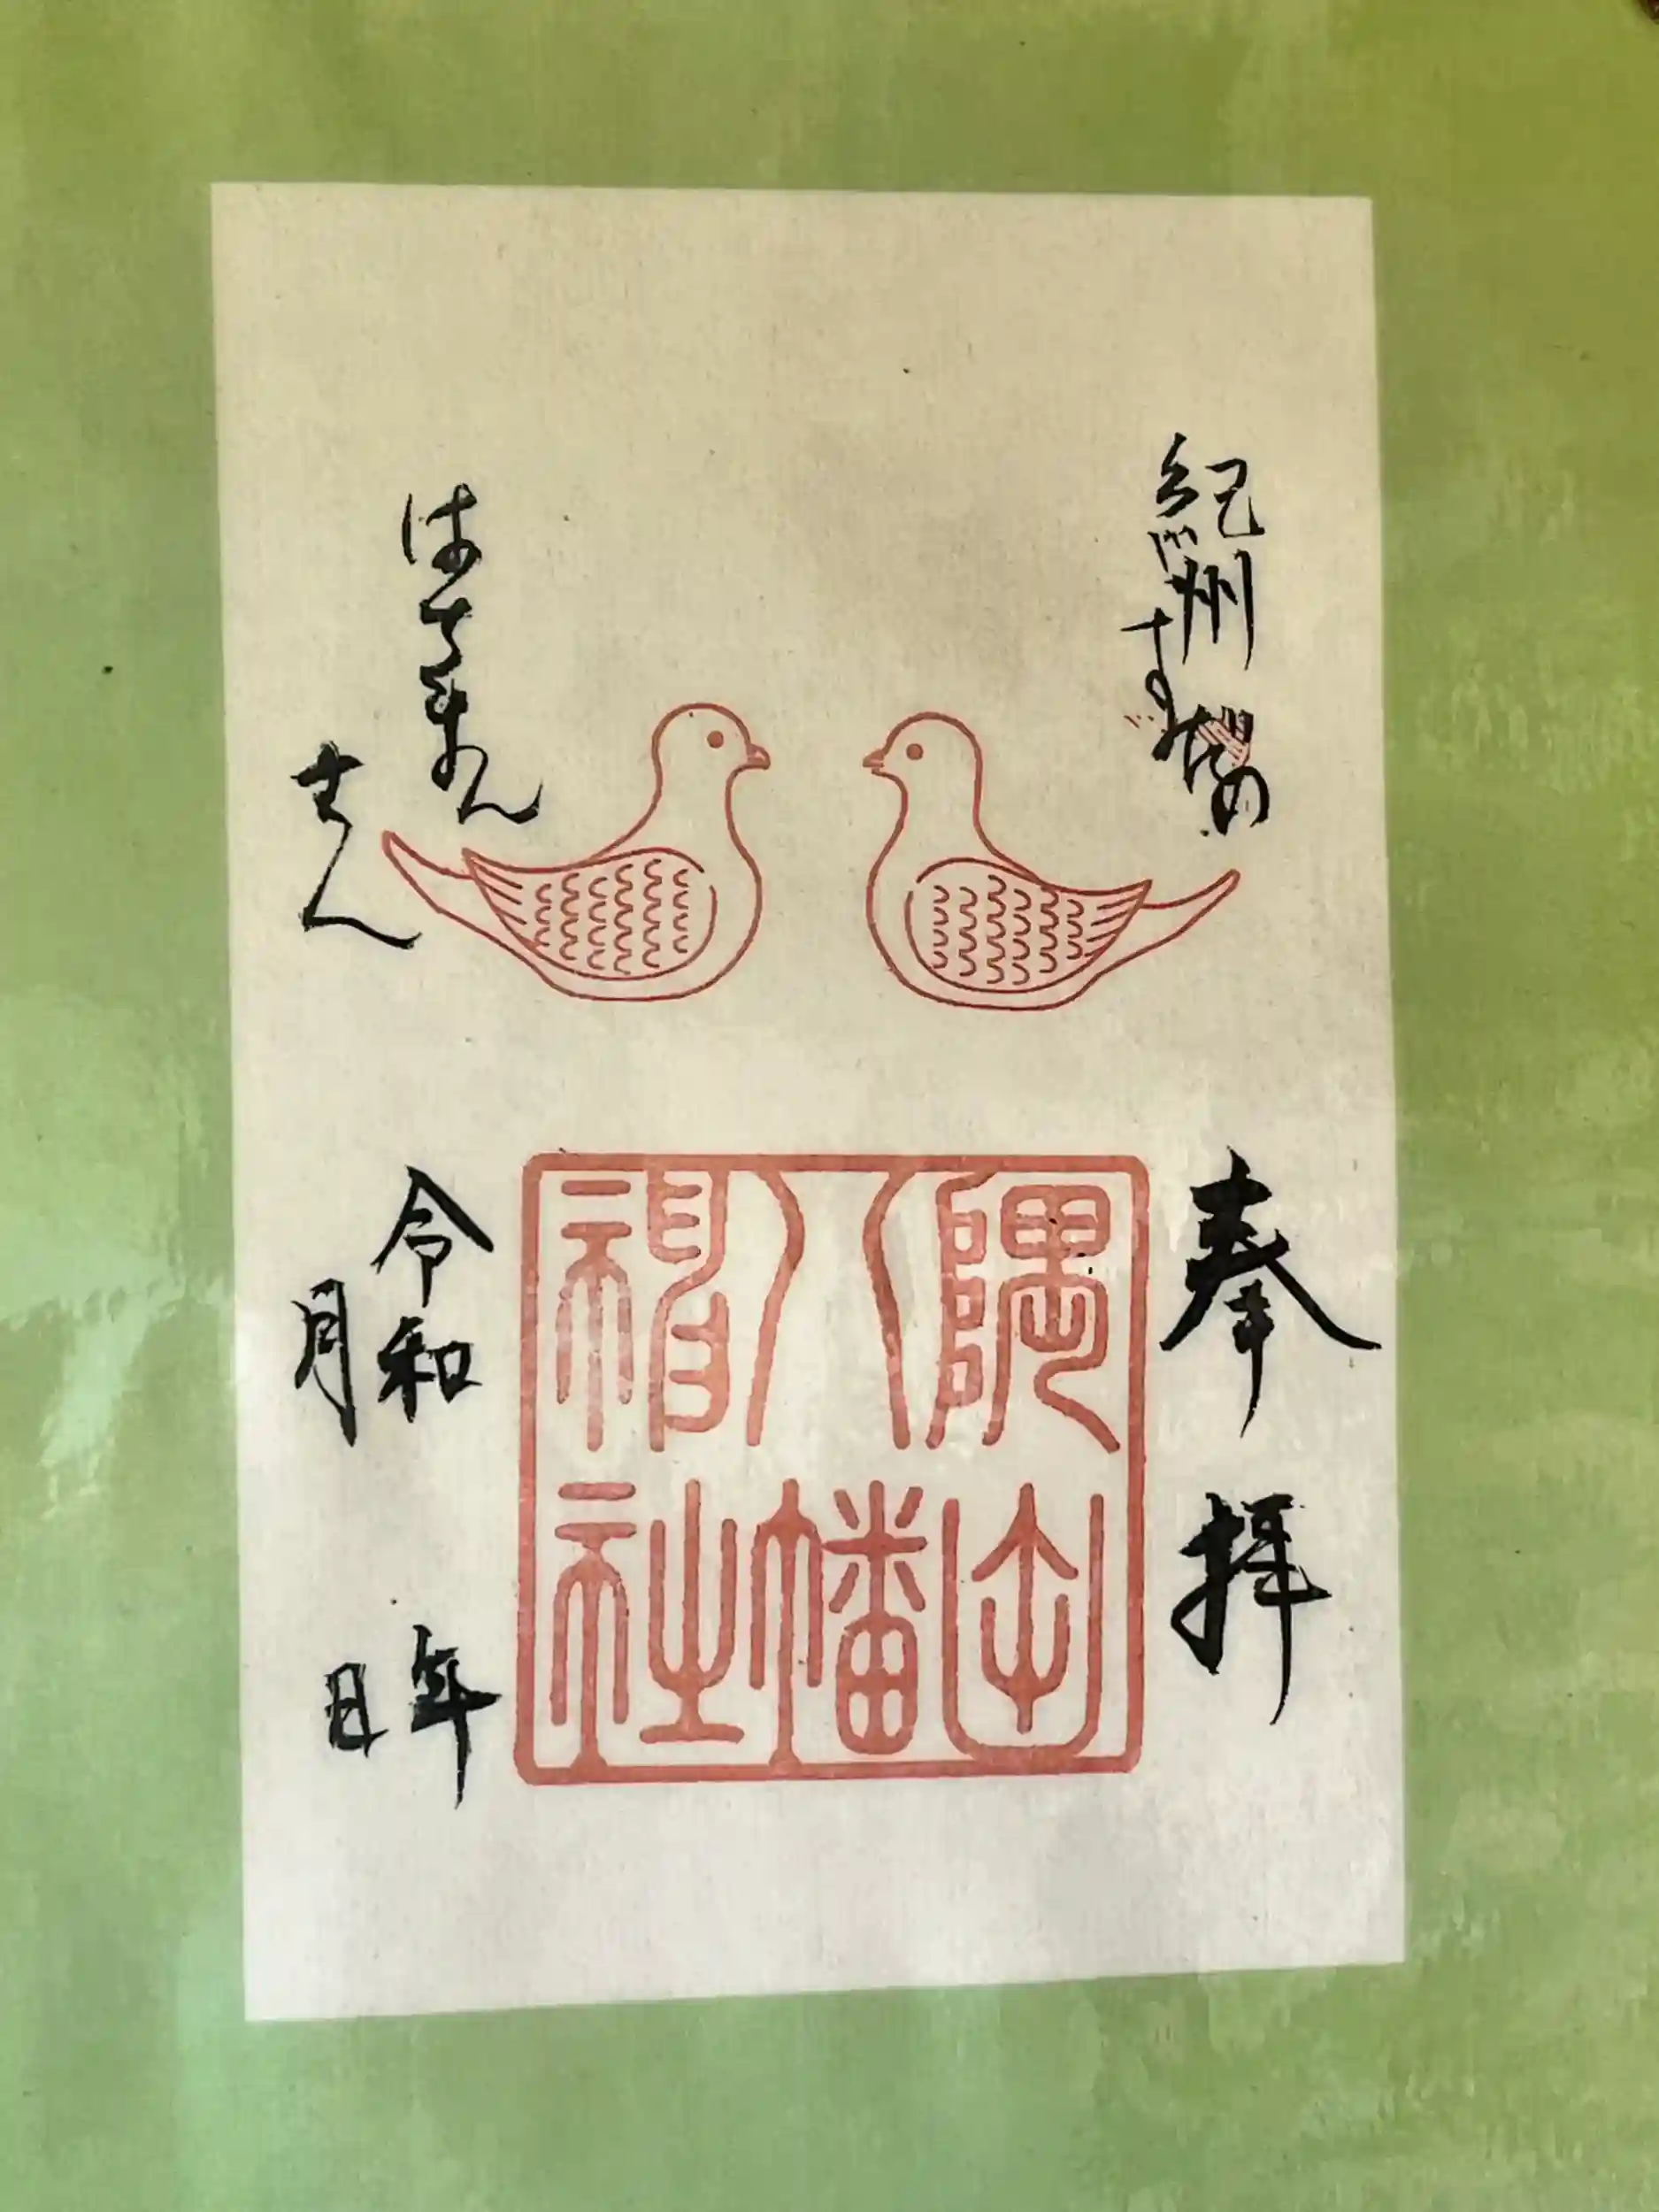 紀州
はちまん
さん
奉拝
隅田
八幡
神社
令和 年
月 日